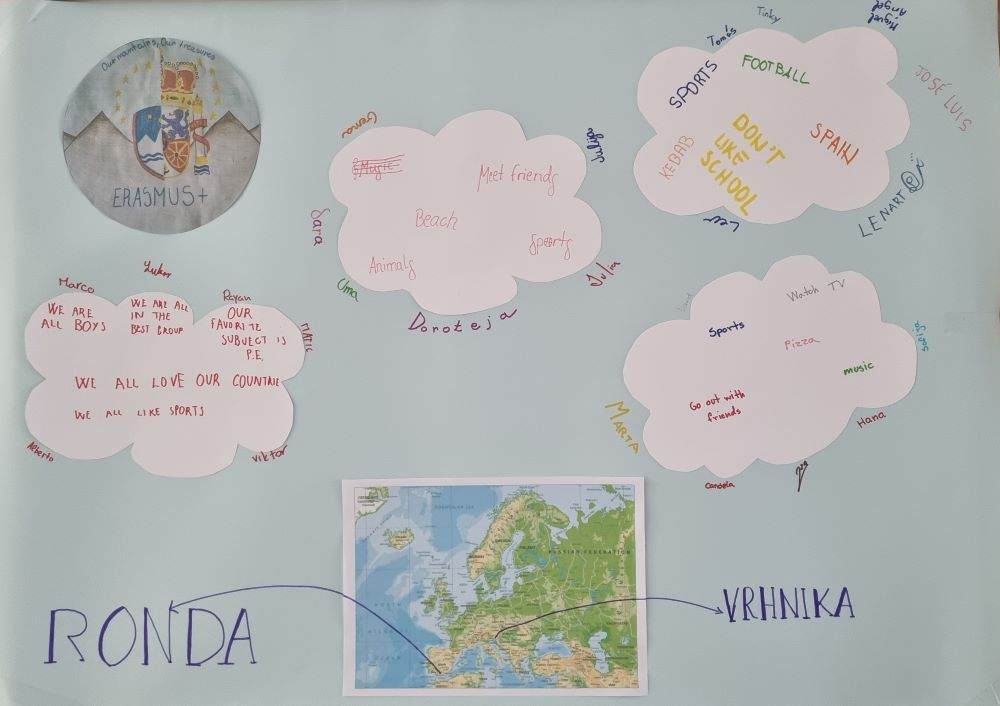 Our mountains, Our treasures
ERASMUS+
Gema
Music
Meet friends
Beach
Sports
Animals
Sara
Uma
Doroteja
Julia
Julija
Tinky
Tomás
Miguel
Angel
JOSÉ LUIS
LENART
Lev
SPORTS
FOOTBALL
KEBAB
DON'T
LIKE
SCHOOL
SPAIN
Marco
Luka
Rayan
MATIC
WE ARE
ALL BOYS
WE ARE ALL
IN THE
BEST GROUP
OUR
FAVORITE
SUBJECT IS
P.E.
WE ALL LOVE OUR COUNTRIE
WE ALL LIKE SPORTS
Alberto
Viktor
Watch TV
Sports
Pizza
music
Go out with
friends
MARTA
Candela
Hana
Sofia
RONDA
VRHNIKA
RUSSIAN FEDERATION